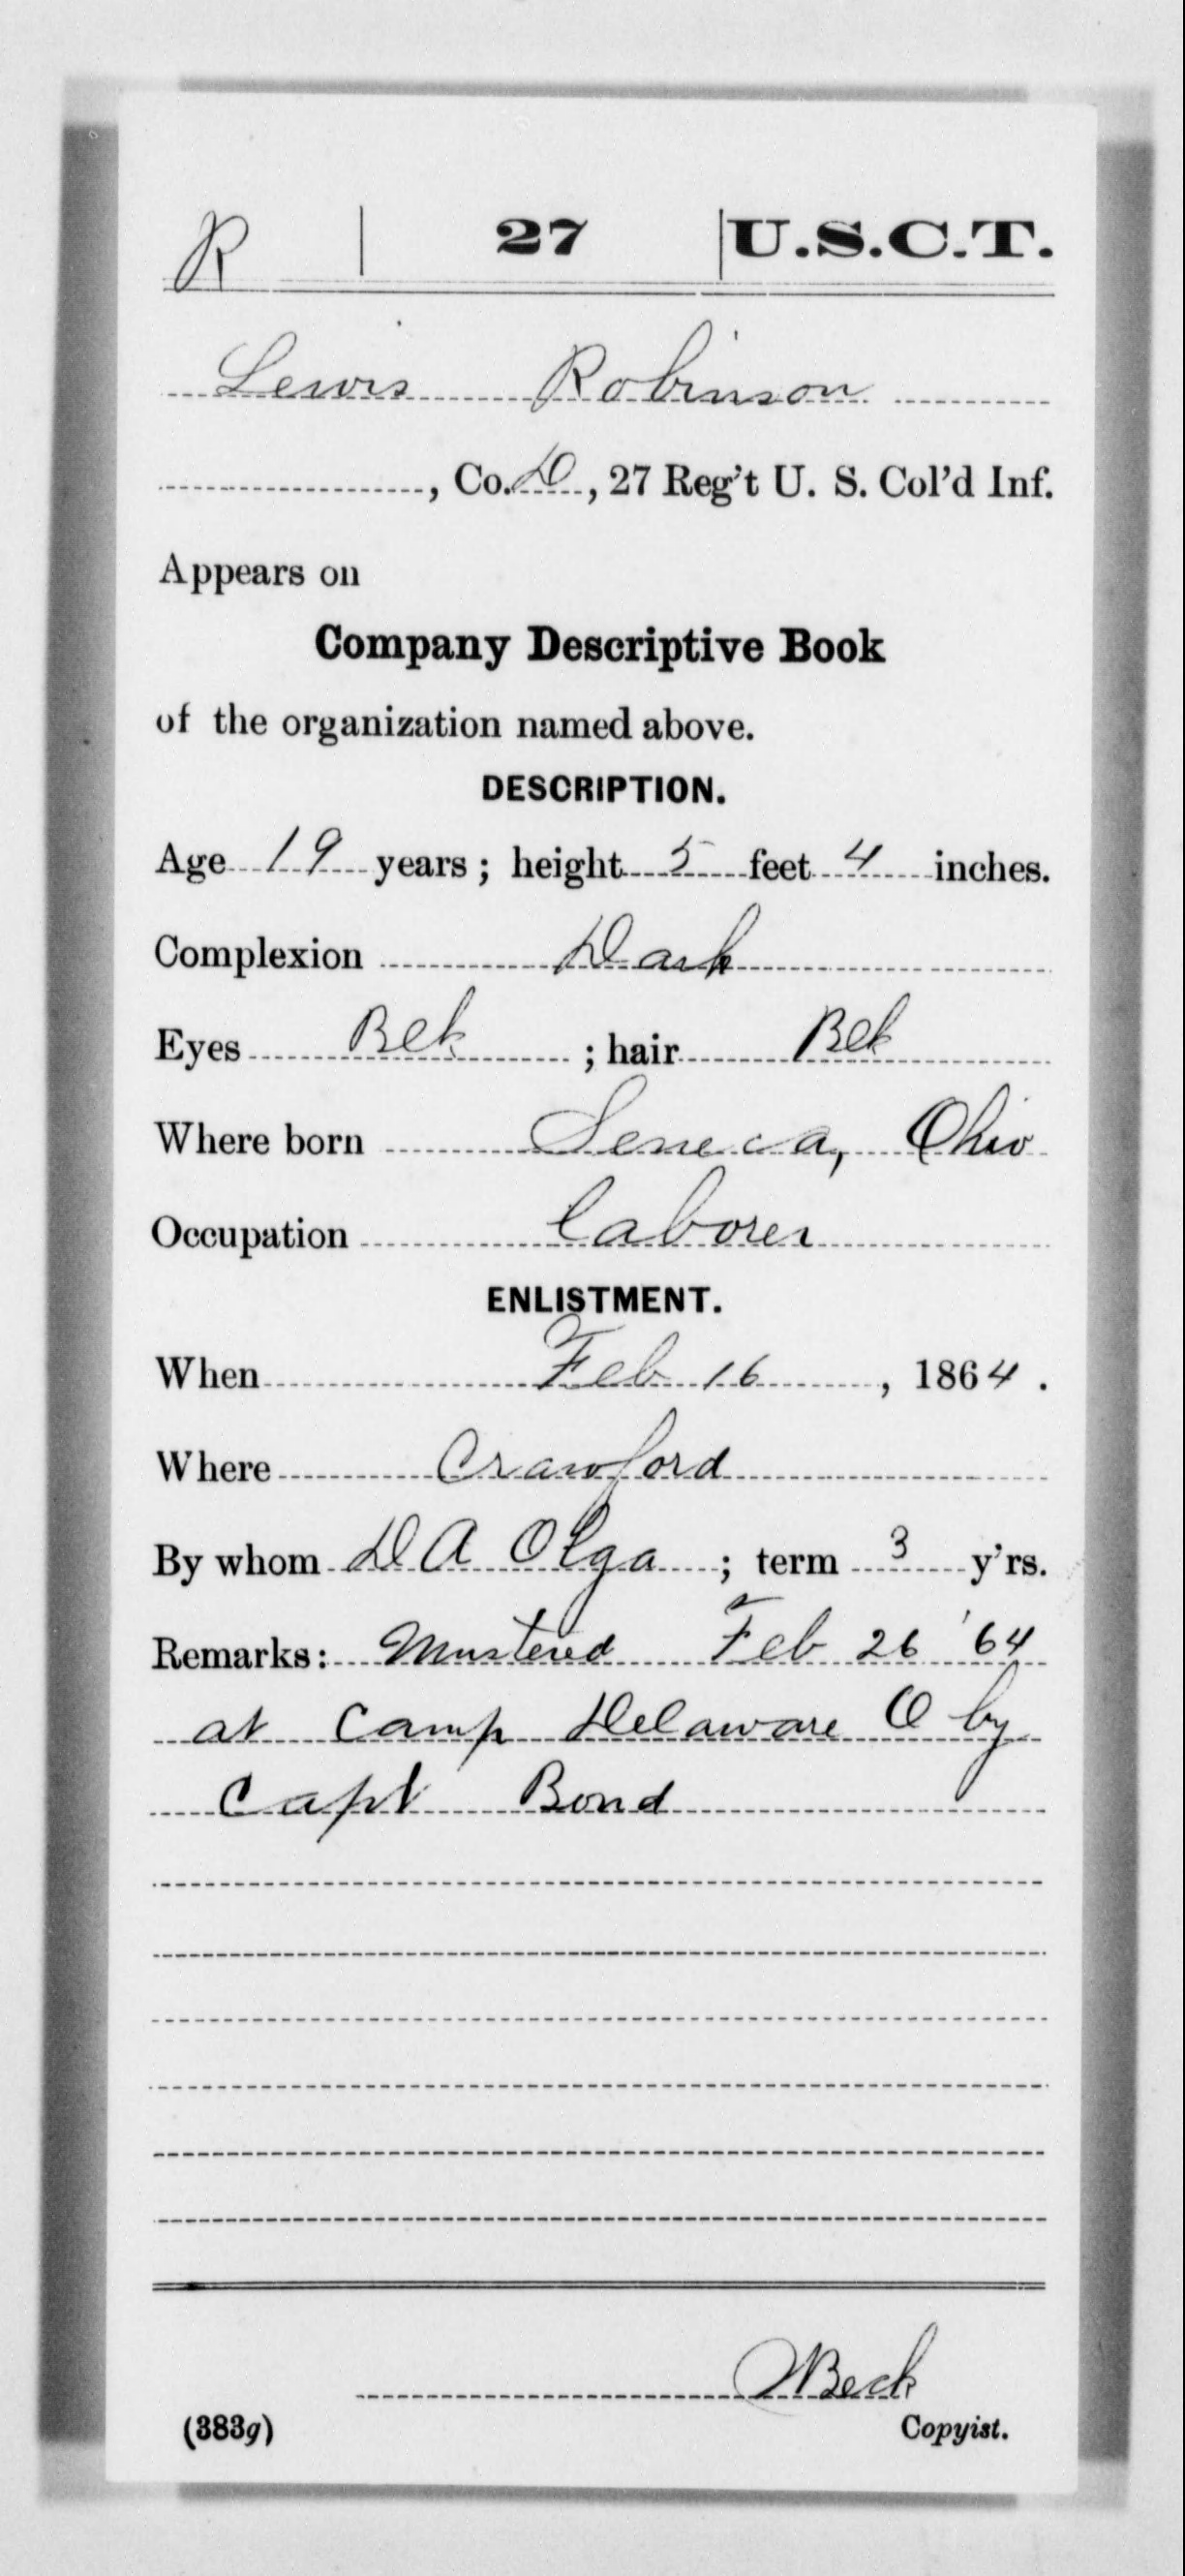 R 27 U.S.C.T.
Lewis Robinson
, Co. D, 27 Reg't U. S. Col'd Inf.
Appears on
Company Descriptive Book
of the organization named above.
DESCRIPTION.
Age 19 years; height 5 feet 4 inches.
Complexion Dark
Eyes Blk ; hair Blk
Where born Seneca, Ohio
Occupation laborer
ENLISTMENT.
When Feb 16, 1864.
Where Crawford
By whom D A Olga; term 3 y'rs.
Remarks: Mustered Feb 26 '64
at Camp Delaware O by
Capt Bond
Beck
(383g) Copyist.